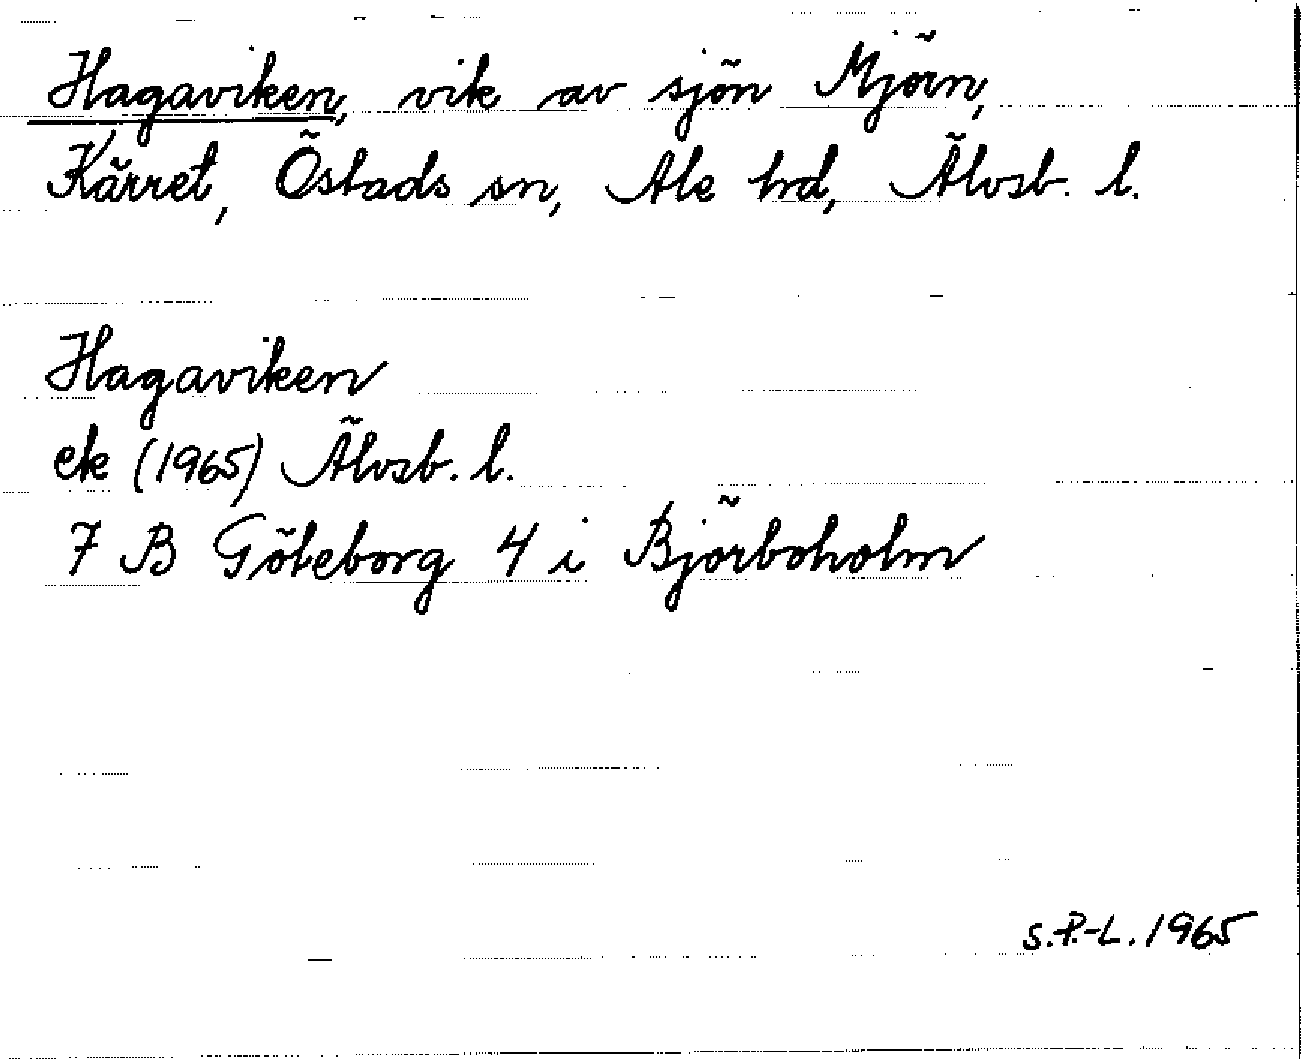 Hagaviken, vik av sjön Mjörn,
Kärret, Östads sn, Ale hrd, Älvsb. l.
Hagaviken
ek (1965) Älvsb. l.
7 B Göteborg 4 i Björboholm
S.P.-L. 1965